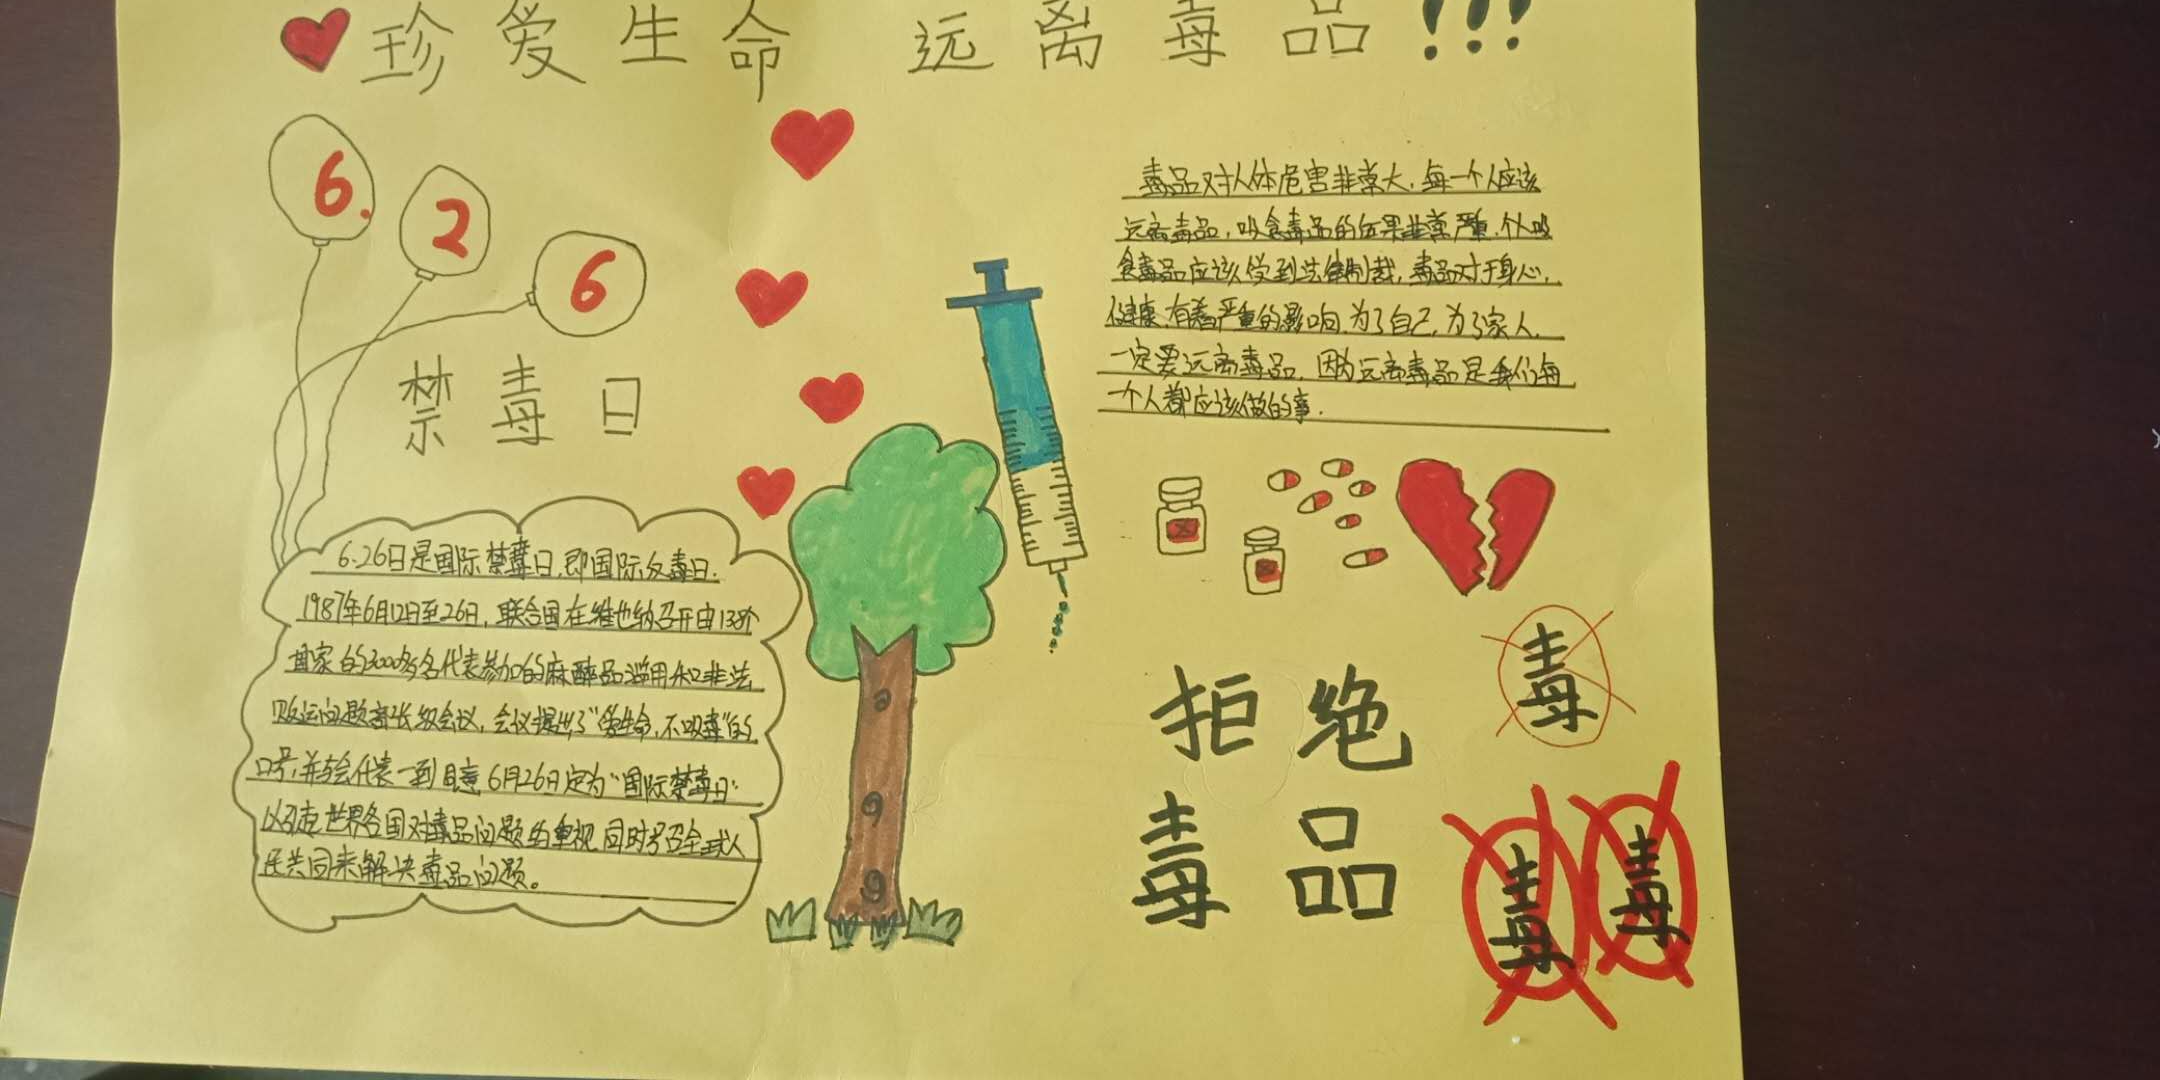 珍爱生命 远离毒品!!!
6.
2
6
禁毒日
6.26日是国际禁毒日,即国际反毒日.
1987年6月12日至26日,联合国在维也纳召开由138个
国家的3000多名代表参加的麻醉品滥用和非法
贩运问题部长级会议,会议提出了“爱生命,不吸毒”的
口号,并与会代表一到同意6月26日定为“国际禁毒日”
以引起世界各国对毒品问题的重视同时号召全球人
民共同来解决毒品问题。
毒品对人体危害非常大,每一个人应该
远离毒品,吸食毒品的后果非常严重.个人吸
食毒品应该受到法律制裁,毒品对于身心,
健康,有着严重的影响,为了自己,为了家人,
一定要远离毒品,因为远离毒品是我们每
一个人都应该做的事.
拒绝
毒品
毒
毒
毒